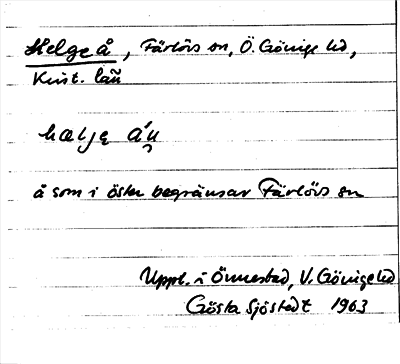 Helge å, Färlövs sn, Ö. Göinge hd,
Krist. län
hælje a´u
å som i öster begränsar Färlövs sn
Uppt. i Önnestad, V. Göinge hd
Gösta Sjöstedt 1963